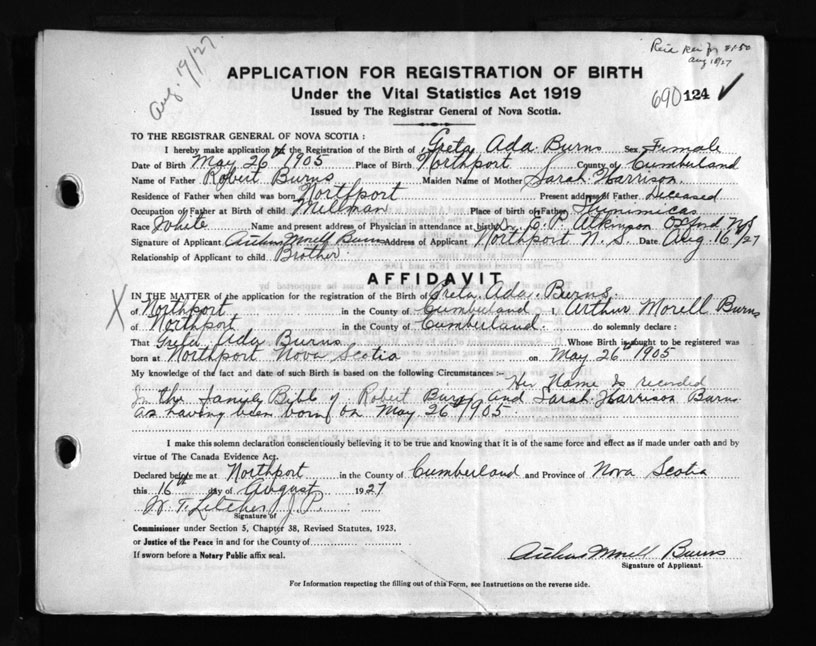 Aug. 19/27
Aug 18/27
APPLICATION FOR REGISTRATION OF BIRTH
Under the Vital Statistics Act 1919
Issued by The Registrar General of Nova Scotia.
690 124 ✓
TO THE REGISTRAR GENERAL OF NOVA SCOTIA :
I hereby make application for the Registration of the Birth of Greta Ada Burns Sex Fimale
Date of Birth May 26th 1905 Place of Birth Northport County of Cumberland
Name of Father Robert Burns Maiden Name of Mother Sarah Harrison
Residence of Father when child was born Northport Present address of Father Diceased
Occupation of Father at Birth of child Millman Place of birth of Father
Race White Name and present address of Physician in attendance at birth Dr. E. P. Atkinson Oxford N.S
Signature of Applicant Arthur Morell Burns Address of Applicant Northport N. S. Date Aug. 16/27
Relationship of Applicant to child Brother
AFFIDAVIT
X
IN THE MATTER of the application for the registration of the Birth of Greta Ada Burns
of Northport in the County of Cumberland I, Arthur Morell Burns
of Northport in the County of Cumberland. do solemnly declare :
That Greta Ada Burns Whose Birth is sought to be registered was
born at Northport Nova Scotia on May 26th 1905
My knowledge of the fact and date of such Birth is based on the following Circumstances :—
Her Name Is recorded
In the family Bible of Robert Burns and Sarah Harrison Burns
as having been born on May 26th 1905.
I make this solemn declaration conscientiously believing it to be true and knowing that it is of the same force and effect as if made under oath and by
virtue of The Canada Evidence Act.
Declared before me at Northport in the County of Cumberland and Province of Nova Scotia
this 16th day of August 1927
W. T. Letcher J. P.
Signature of
Commissioner under Section 5, Chapter 38, Revised Statutes, 1923,
or Justice of the Peace in and for the County of
If sworn before a Notary Public affix seal.
Arthur Morell Burns
Signature of Applicant.
For Information respecting the filling out of this Form, see Instructions on the reverse side.